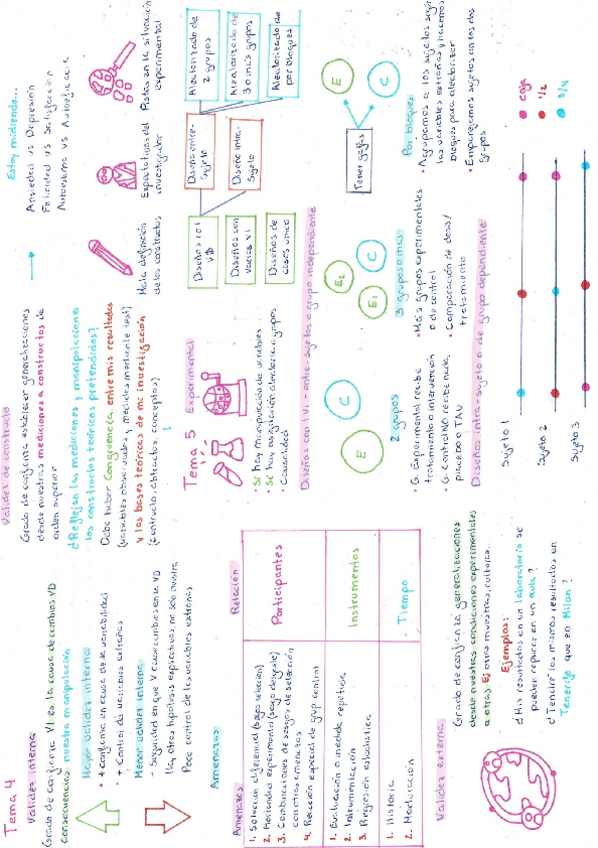 Tema 4
Validez interna
Grado de confianza VI es la causa de cambios VD
Consecuencias nuestra manipulación
Mayor validez interna
+ Confianza en causa de la variabilidad
+ Control de variables extrañas
Menor validez interna
- Seguridad en que V causa cambios en la VD
Hay otras hipótesis explicativas, no solo nuestra
Poco control de las variables extrañas
Amenazas:
Amenazas
Relación
1. Selección diferencial (sesgo selección)
2. Mortalidad experimental (sesgo desgaste)
3. Combinaciones de sesgos de selección
con otras amenazas
4. Reacción especial de grup control
Participantes
1. Evaluación o medida repetida
2. Instrumentación
3. Regresión estadística
Instrumentos
1. Historia
2. Maduración
Tiempo
Validez externa
Grado de confianza generalizaciones
desde nuestras condiciones experimentales
a otras. Ej otras muestras, culturas.
Ejemplos:
¿Mis resultados en un laboratorio se
pueden replicar en un aula?
¿Tendré los mismos resultados en
Tenerife que en Milán?
Validez de constructo
Grado de confianza establecer generalizaciones
desde nuestras mediciones a constructos de
orden superior
¿Reflejan las mediciones y manipulaciones
los constructos teóricos pretendidos?
Debe haber Congruencia entre mis resultados
(variables observables, y medibles mediante test)
y las bases teóricas de mi investigación
(Contructo, abstractos, conceptos)
Estoy midiendo...
Ansiedad vs Depresión
Felicidad vs Satisfacción
Autoestima vs Autoeficacia
Mala definición
de los constructos
Expectativas del
investigador
Pistas en la situación
experimental
Tema 5
Experimental
• Sí hay manipulación de variables
• Sí hay asignación aleatoria a grupos
• Causalidad
Diseños con 1
VD
Diseños con
varias VI
Diseños de
caso único
Diseño entre-
Sujeto
Diseño intra-
Sujeto
Aleatorizado de
2 grupos
Aleatorizado de
3 o más grupos
Aleatorizado
por bloques
Diseños con 1 VI - entre-sujetos o grupo independiente
E
C
2 grupos
• G. Experimental recibe
tratamiento o intervención
• G. Control NO recibe nada,
placebo o TAU
E1
E2
C
3 grupos o más
• Más grupos experimentales
o de control
• Comparación de dosis/
tratamiento
Tener gafas
E
C
Por bloques
• Agrupamos a los sujetos según
las variables extrañas y hacemos
bloques para aleatorizar
• Emparejamos sujetos en los dos
grupos
Diseños intra-sujeto o de grupo dependiente
Sujeto 1
Sujeto 2
Sujeto 3
caja
1/2
3/4